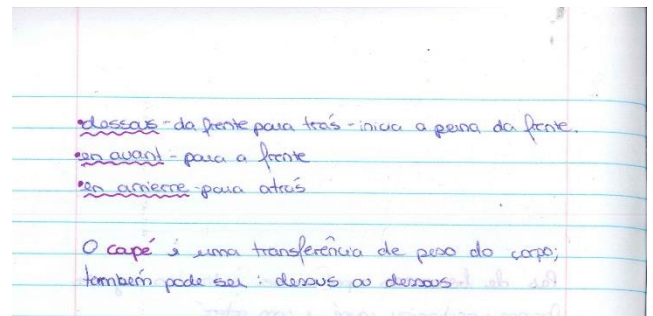 •dessous - da frente para trás - inicia a perna da frente.
•en avant - para a frente
•en arrierre - para atrás
O capé é uma transferência de peso do corpo;
também pode ser : dessus ou dessous